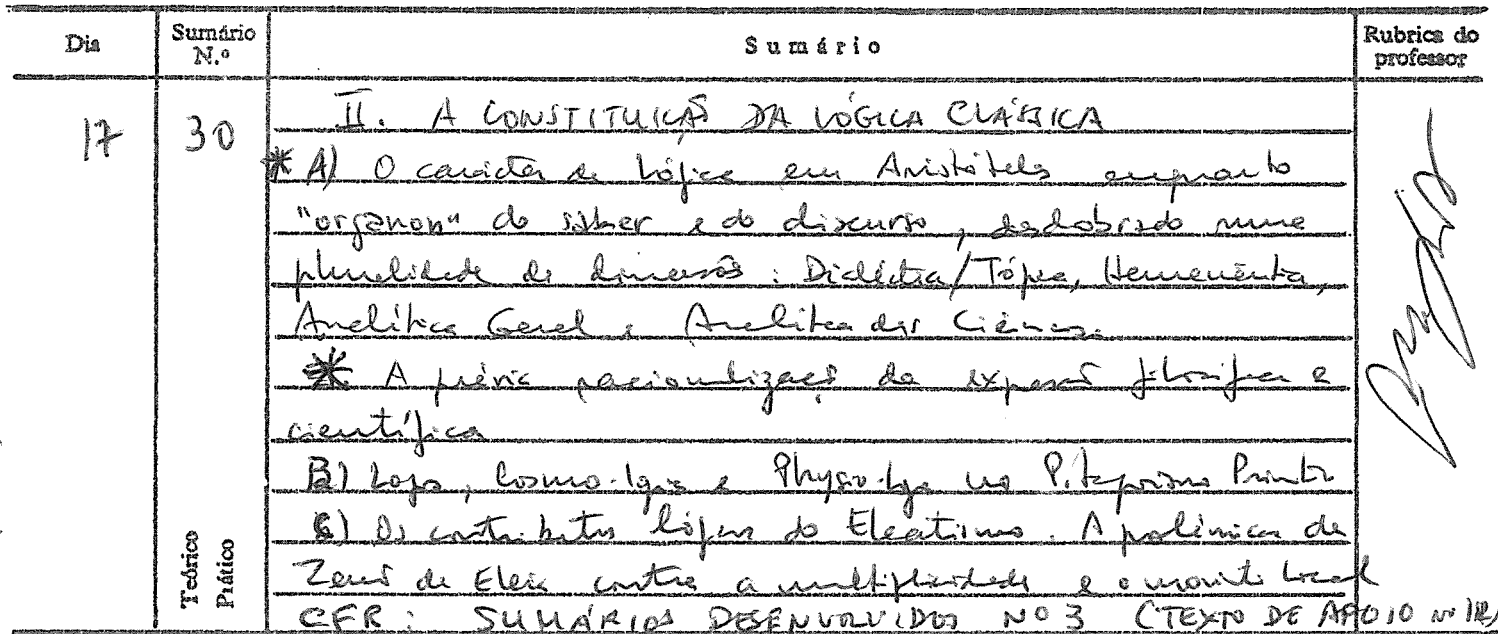 Dia Sumário N.º Sumário Rubrica do professor
17 30 II. A CONSTITUIÇÃO DA LÓGICA CLÁSSICA
* A) O carácter da Lógica em Aristóteles enquanto
"organon" do saber e do discurso, desdobrado numa
pluralidade de dimensões: Dialéctica/Tópica, Hermenêutica,
Analítica Geral e Analítica das Ciências
* A prévia racionalização da exposição filosófica e
científica
B) Logos, Cosmo-logia e Physio-logia no Pitagorismo
C) Os contributos lógicos do Eleatismo. A polémica de
Zenão de Eleia contra a multiplicidade e o movimento local
CFR: SUMÁRIOS DESENVOLVIDOS Nº 3 (TEXTO DE APOIO Nº
Teórico
Prático